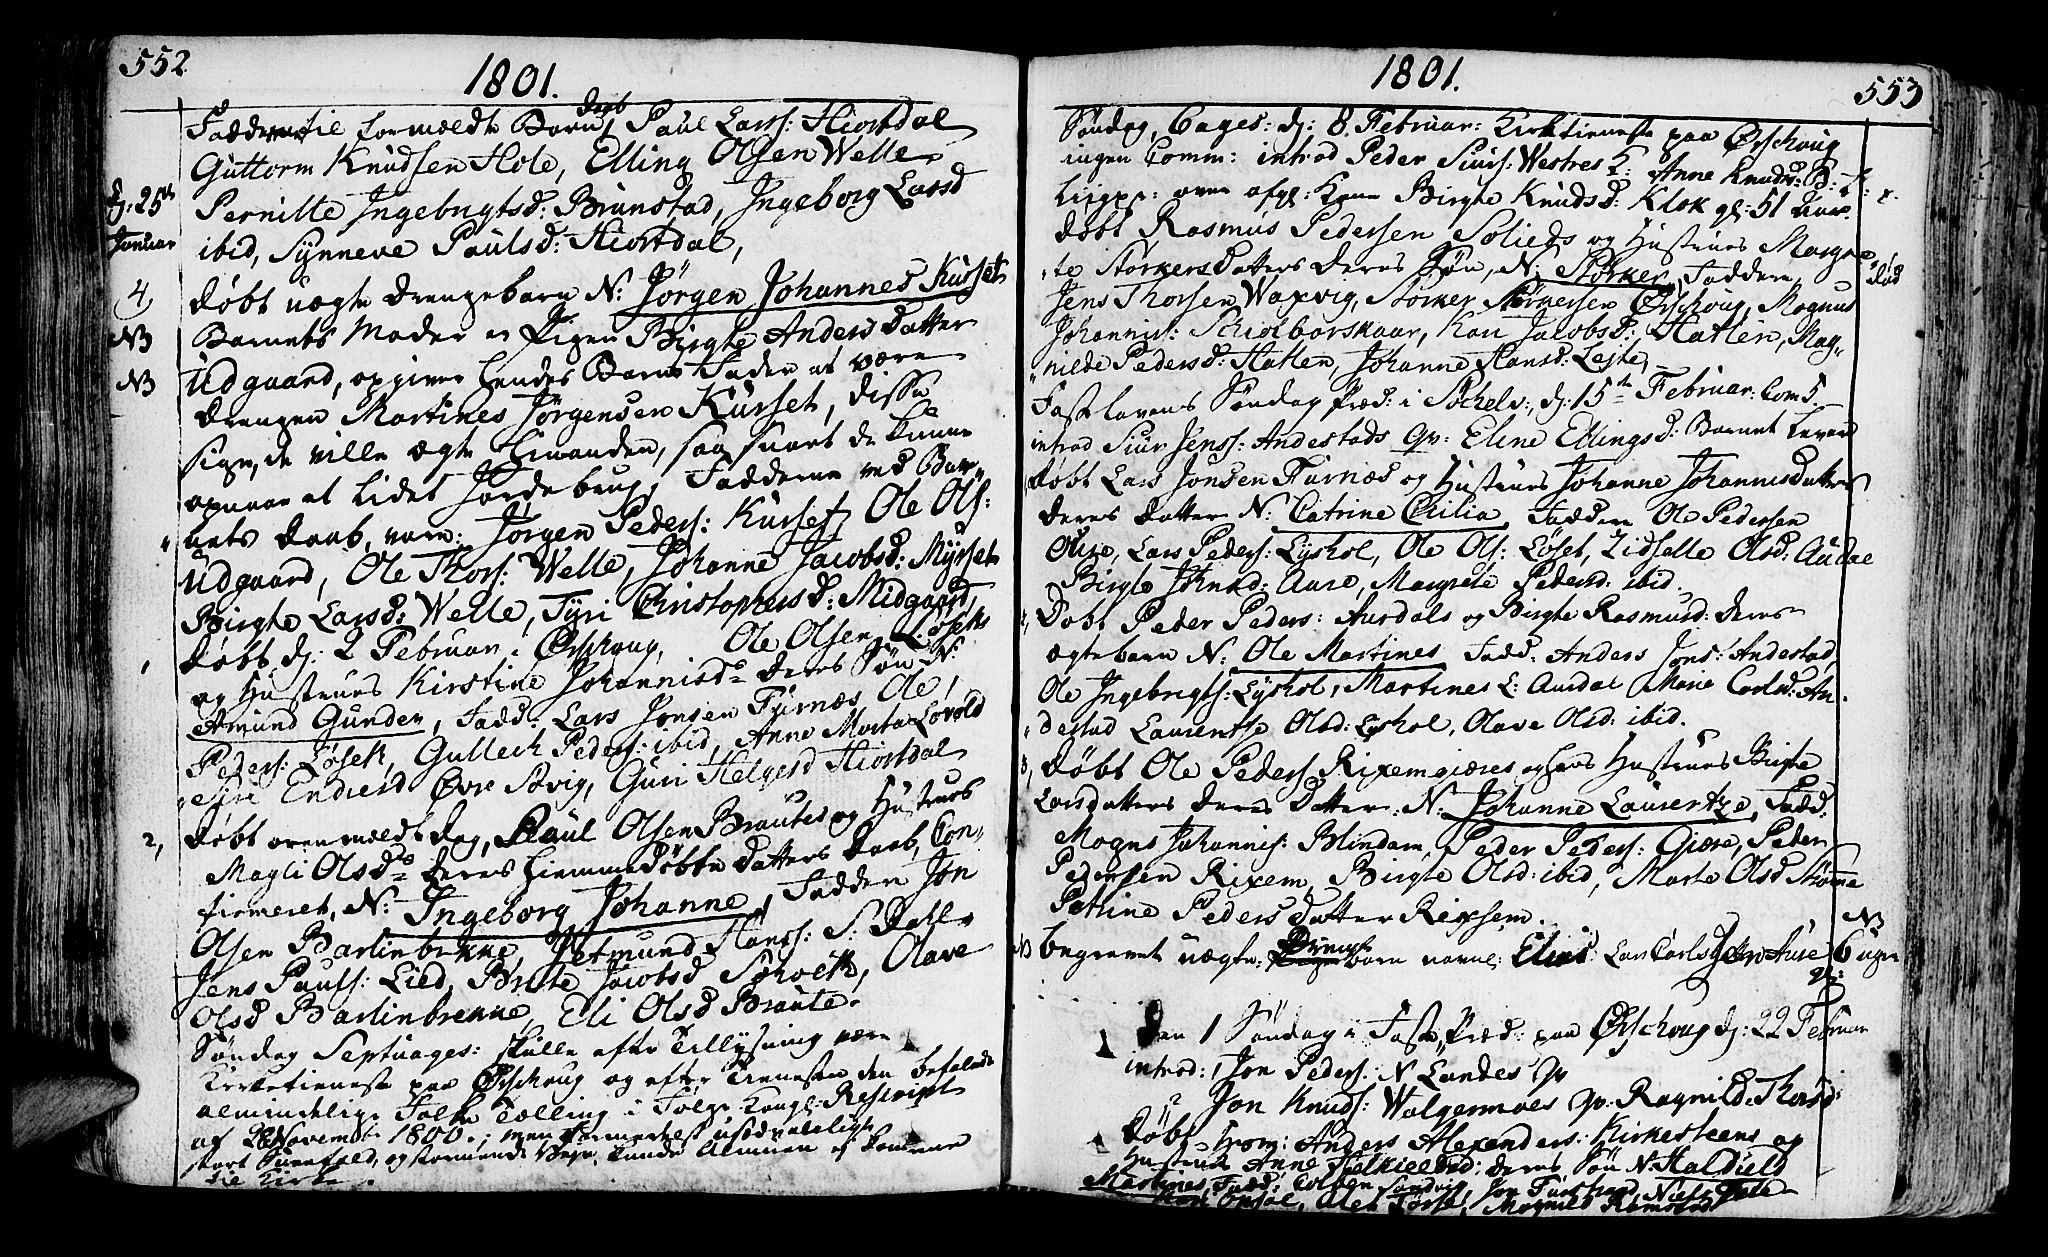 552
1801.
Fadderne til formeldte Barns Daab, Paul Larss: Hiortdal
Guttorm Knudsen Hole, Elling Olsen Welle
Pernille Ingebrigtsd: Brunstad, Ingeborg Larsd
dj: 25de Januar
ibid, Synneve Paulsd: Hiortdal,
4
døbt uægte Drengebarn N: Jörgen Johannes Kurset
NB
Barnets Moder er Pigen Birgte Anders Datter
NB
Udgaard, opgiver hendes Barns Fader at være
Drengen Martines Jörgensen Kurset, disse
sige, de ville ægte hinanden, saa snart de kunne
opnaae et lidet Jordebrug, Fadderne ved Bar„
„nets Daab, vare: Jörgen Peders: Kurset, Ole Ols:
Udgaard, Ole Thors: Welle, Johanne Jacobsd: Myrset
Birgte Larsd: Welle, Tyri Christophersd: Midgaard,
døbt dj: 2 Februar. Ørschoug, Ole Olsen Løseks
og Hustrues Kirstine Johannisd: deres Søn N:
Amund Gunder, Fadd: Lars Jonsen Furnæs, Ole
Peders: Løsek, Gullech Peders: ibid, Anne Marta Lovold
Endresd Øvre Aavig, Guri Helgesd Hiortdal
2,
døbt ovenmeldte Dag, Paul Olsen Brautes og Hustrues
Magli Olsd: deres hiemmedöbte Datters Daab, Con„
firmeret, N: Ingeborg Johanne, Faddere Jon
Olsen Barlinbrekke, Jetmund Hanss: S: Dahl
Jens Pauls: Lied, Brite Jacobsd Solvek, Olave
Olsd Barlinbrekke, Eli Olsd Braute.
Søndag Septuages: skulle efter Tillysning være
Kirketieneste paa Ørschoug og efter Tienesten den befalede
almindelige Folke Tælling i Følge Kongl: Rescript
af 28 Novembr 1800.; men formedelst usædvanlig
stort Sneefald, og stormende Veyr, kunde Almuen ej komme
til Kirke.
1801.
553
Søndag, Sages: dj: 8. Februar: Kirketieneste paa Ørschoug
ingen Comm: introd Peder Siurs: Westres Q: Anne Knudsd: B:
Liigpr: over afg: Kone Birgte Knudsd: Klok gl: 51 Aar.
døbt Rasmus Pedersen Solieds og Hustrues Margre„
„te Størkersdatters deres Søn, N: Størker, Faddere,
død
Jens Thorsen Waxvig, Størker Størkersen Ørschoug, Mognus
Johanniss: Schiolborskaar, Kari Jacobsd: Hatlen, Mag„
„nilde Pedersd: Hatlen, Johanne Hansd: Lejte,
Fastelavens Søndag Præd: i Søchelv:, dj: 15de Februar: Com 5.
introd Siur Jenss: Andestads Qv: Eline Ellingsd: Barnet levend
døbt Lars Jonsen Furnæs og Hustrues Johanne Johannisdatters
deres Datter N: Catrine Cicilia Faddere Ole Pedersen
Aure, Lars Peders: Lyshol, Ole Ols: Løset, Zidselle Olsd: Aurdal
Birgte Johnsd: Aure, Margrete Pedersd: ibid.
Døbt Peder Peders: Aurdals og Birgte Rasmusd: deres
ægtebarn N: Ole Martines Fadd: Anders Jons: Andestad,
Ole Ingebrigts: Lyshol, Martines L: Aurdal Marie Carlsd: An„
„destad Laurentse Olsd: Lyshol, Olave Olsd: ibid.
3,
døbt Ole Peders: Rixemgiæres og hans Hustrues Birgte
Larsdatters deres Datter: N: Johanne Laurentze, Fadd:
Mogns Johannis: Blindem, Peder Peders: Giære, Peder
Pedersen Rixem, Birgte Olsd: ibid, Marte Olsd Strømme
Petrine Pedersdatter Rixem.
NB
NB
begravet uægte: Drenge barn navnl: Elias: Lars Carls: Aure 6 uger
gl:
Den 1 Søndag i Faste, Præd: paa Ørschoug dj: 22 Februar
introd: Jon Peders: N Landes Qv
2
Jon Knuds: Walgermoes Qv. Ragnild Thorsd:
døbt Trom: Anders Alexanders: Kirkesteens og
Hustrue Anne Folkiersd: deres Søn N Haldield
Martines, Fadd: Colben Landvig, Jon Furstrand, Niels Hole
Opsal, Magnild Ramstad